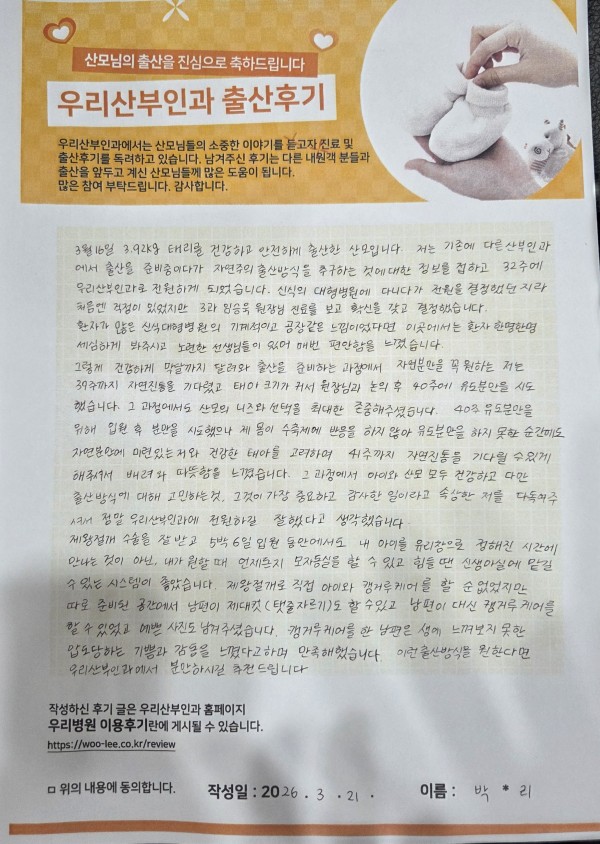 산모님의 출산을 진심으로 축하드립니다
우리산부인과 출산후기
우리산부인과에서는 산모님들의 소중한 이야기를 듣고자 진료 및
출산후기를 독려하고 있습니다. 남겨주신 후기는 다른 내원객 분들과
출산을 앞두고 계신 산모님들께 많은 도움이 됩니다.
많은 참여 부탁드립니다. 감사합니다.
3월16일 3.92kg 태리를 건강하고 안전하게 출산한 산모입니다. 저는 기존에 다른산부인과
에서 출산을 준비중이다가 자연주의 출산방식을 추구하는 것에대한 정보를 접하고 32주에
우리산부인과로 전원하게 되었습니다. 신식의 대형병원에 다니다가 전원을 결정했던 지라
처음엔 걱정이 있었지만 3과 임승욱 원장님 진료를 보고 확신을 갖고 결정했습니다.
환자가 많은 신식대형병원의 기계적이고 공장같은 느낌이었다면 이곳에서는 환자 한명한명
세심하게 봐주시고 노련한 선생님들이 있어 매번 편안함을 느꼈습니다.
그렇게 건강하게 막달까지 달려와 출산을 준비하는 과정에서 자연분만을 꼭 원하는 저는
39주까지 자연진통을 기다렸고 태아 크기가 커서 원장님과 논의 후 40주에 유도분만을 시도
했습니다. 그 과정에서도 산모의 니즈와 선택을 최대한 존중해주셨습니다. 40주 유도분만을
위해 입원 후 분만을 시도했으나 제 몸이 수축제에 반응을 하지 않아 유도분만을 하지 못한 순간에도
자연분만에 미련있는 저와 건강한 태아를 고려하며 41주까지 자연진통을 기다릴 수있게
해주셔서 배려와 따뜻함을 느꼈습니다. 그 과정에서 아이와 산모 모두 건강하고 다만
출산방식에 대해 고민하는것, 그것이 가장 중요하고 감사한 일이라고 속상한 저를 다독여주
셔서 정말 우리산부인과에 전원하길 잘했다고 생각했습니다.
제왕절개 수술을 잘 받고 5박6일 입원 동안에서도 내 아이를 유리창으로 접해진 시간에
만나는 것이 아닌, 내가 원할 때 언제든지 모자동실을 할 수 있고 힘들 땐 신생아실에 맡길
수 있는 시스템이 좋았습니다. 제왕절개로 직접 아이와 캥거루케어를 할 순 없었지만
따로 준비된 공간에서 남편이 제대컷 (탯줄자르기)도 할 수있고 남편이 대신 캥거루케어를
할 수 있었고 예쁜 사진도 남겨주셨습니다. 캥거루케어를 한 남편은 생에 느껴보지 못한
압도당하는 기쁨과 감동을 느꼈다고하며 만족해했습니다. 이런출산방식을 원한다면
우리산부인과에서 분만하시길 추천드립니다
작성하신 후기 글은 우리산부인과 홈페이지
우리병원 이용후기란에 게시될 수 있습니다.
https://woo-lee.co.kr/review
□ 위의 내용에 동의합니다. 작성일 : 2026 . 3 . 21 . 이름 : 박 * 리